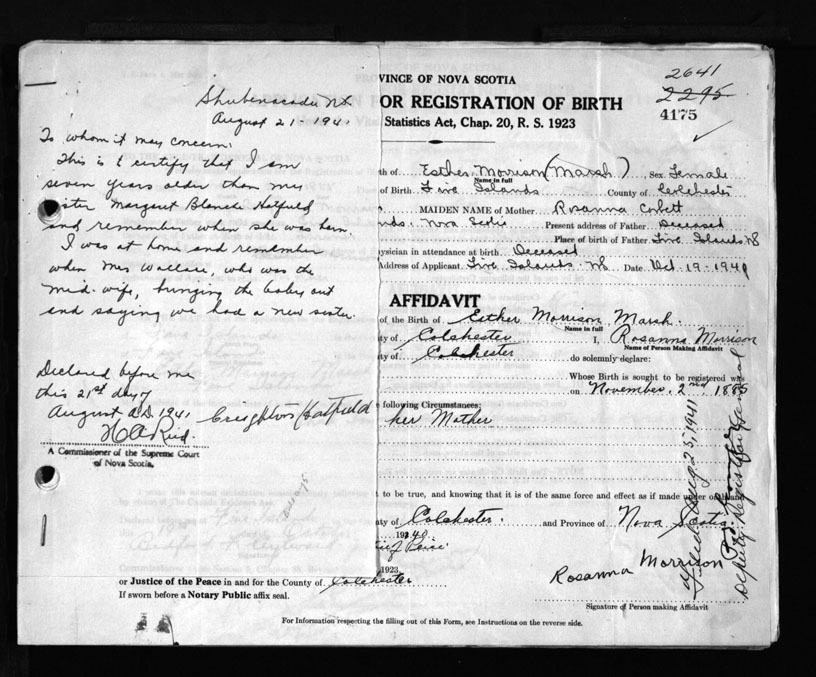 Shubenacadie NS
August 21 - 1941
To whom it may concern:
This is to certify that I am
seven years older than my
sister Margaret Blanch Hatfield
and remember when she was born.
I was at home and remember
when Mrs Wallace, who was the
mid-wife, bringing the baby out
and saying we had a new sister.
Declared before me
this 21st day of
August A.D. 1941
Creighton Hatfield
H A Reid.
A Commissioner of the Supreme Court
of Nova Scotia.
VINCE OF NOVA SCOTIA
2641
2295
4175
FOR REGISTRATION OF BIRTH
Statistics Act, Chap. 20, R. S. 1923
th of Esther Morrison (Marsh) Sex Female
Name in full
of Birth Five Islands County of Colchester
MAIDEN NAME of Mother Rosanna Corbett
nds. Nova Scotia Present address of Father Deceased
Place of birth of Father Five Islands NS
ysician in attendance at birth Deceased
Address of Applicant Five Islands. NS Date Oct. 19 - 1940
AFFIDAVIT
of the Birth of Esther Morrison Marsh.
Name in full
ty of Colchester I, Rosanna Morrison
Name of Person Making Affidavit
ty of Colchester do solemnly declare:
Whose Birth is sought to be registered was
on November 2nd 1885
e following Circumstances:
her Mother
t to be true, and knowing that it is of the same force and effect as if made under oath and
nty of Colchester. and Province of Nova Scotia
1940
1923
or Justice of the Peace in and for the County of Colchester
If sworn before a Notary Public affix seal.
Rosanna Morrison
Signature of Person making Affidavit
For Information respecting the filling out of this Form, see Instructions on the reverse side.
Filed Aug 25, 1941
Deputy Registrar General